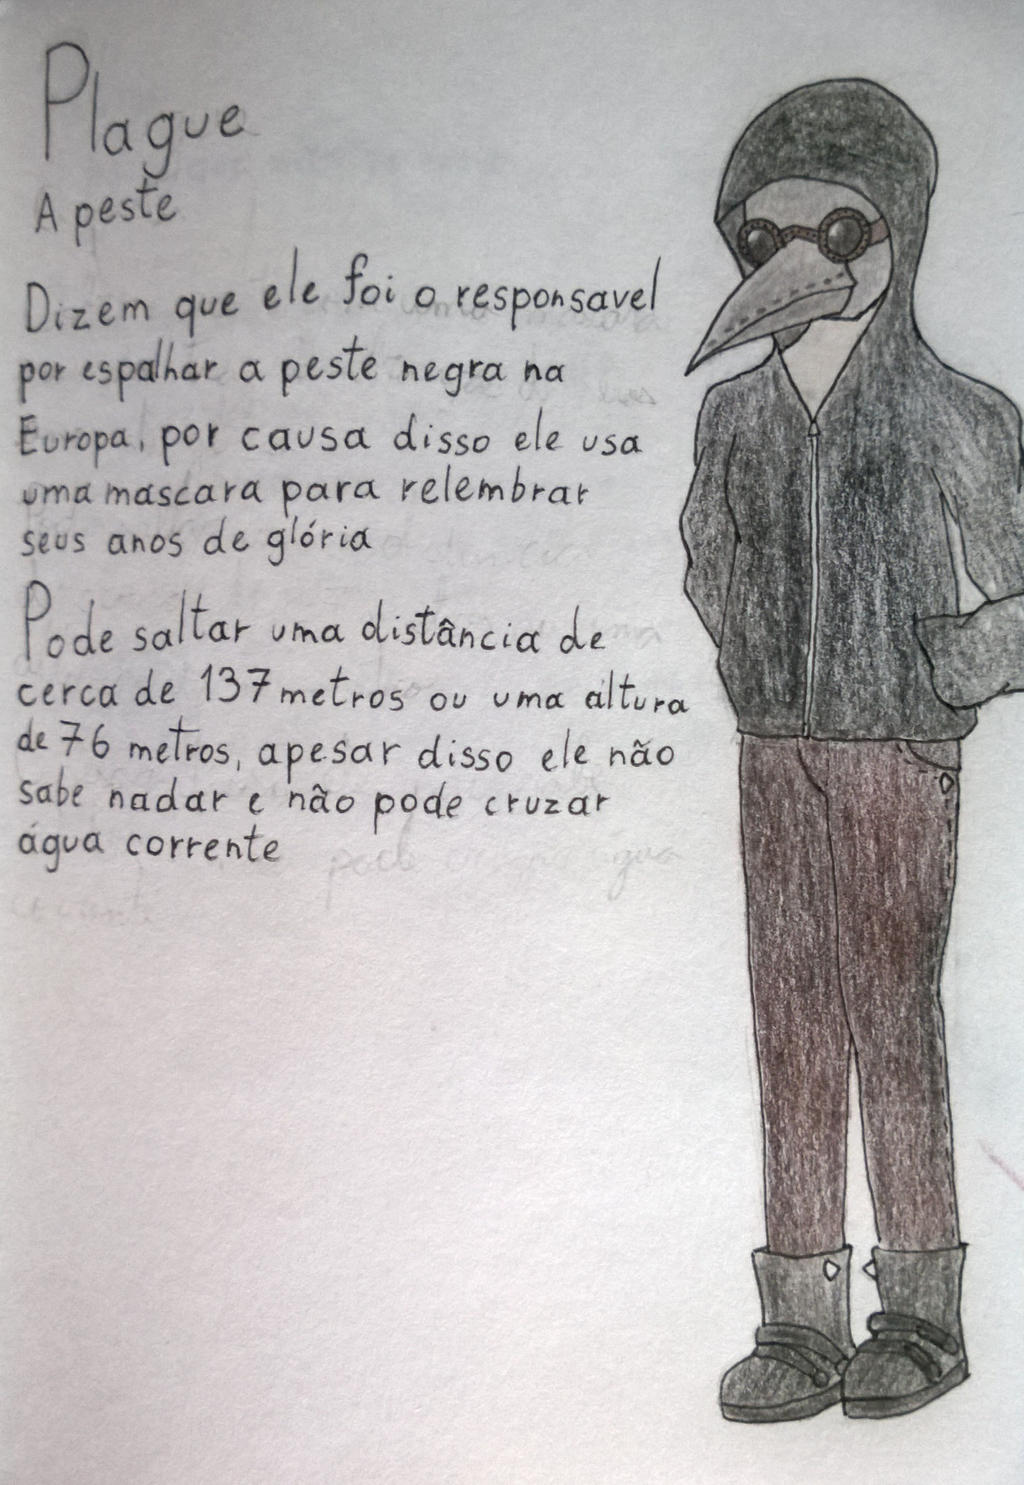 Plague
A peste
Dizem que ele foi o responsavel
por espalhar a peste negra na
Europa, por causa disso ele usa
uma mascara para relembrar
seus anos de glória
Pode saltar uma distância de
cerca de 137 metros ou uma altura
de 76 metros, apesar disso ele não
sabe nadar e não pode cruzar
água corrente